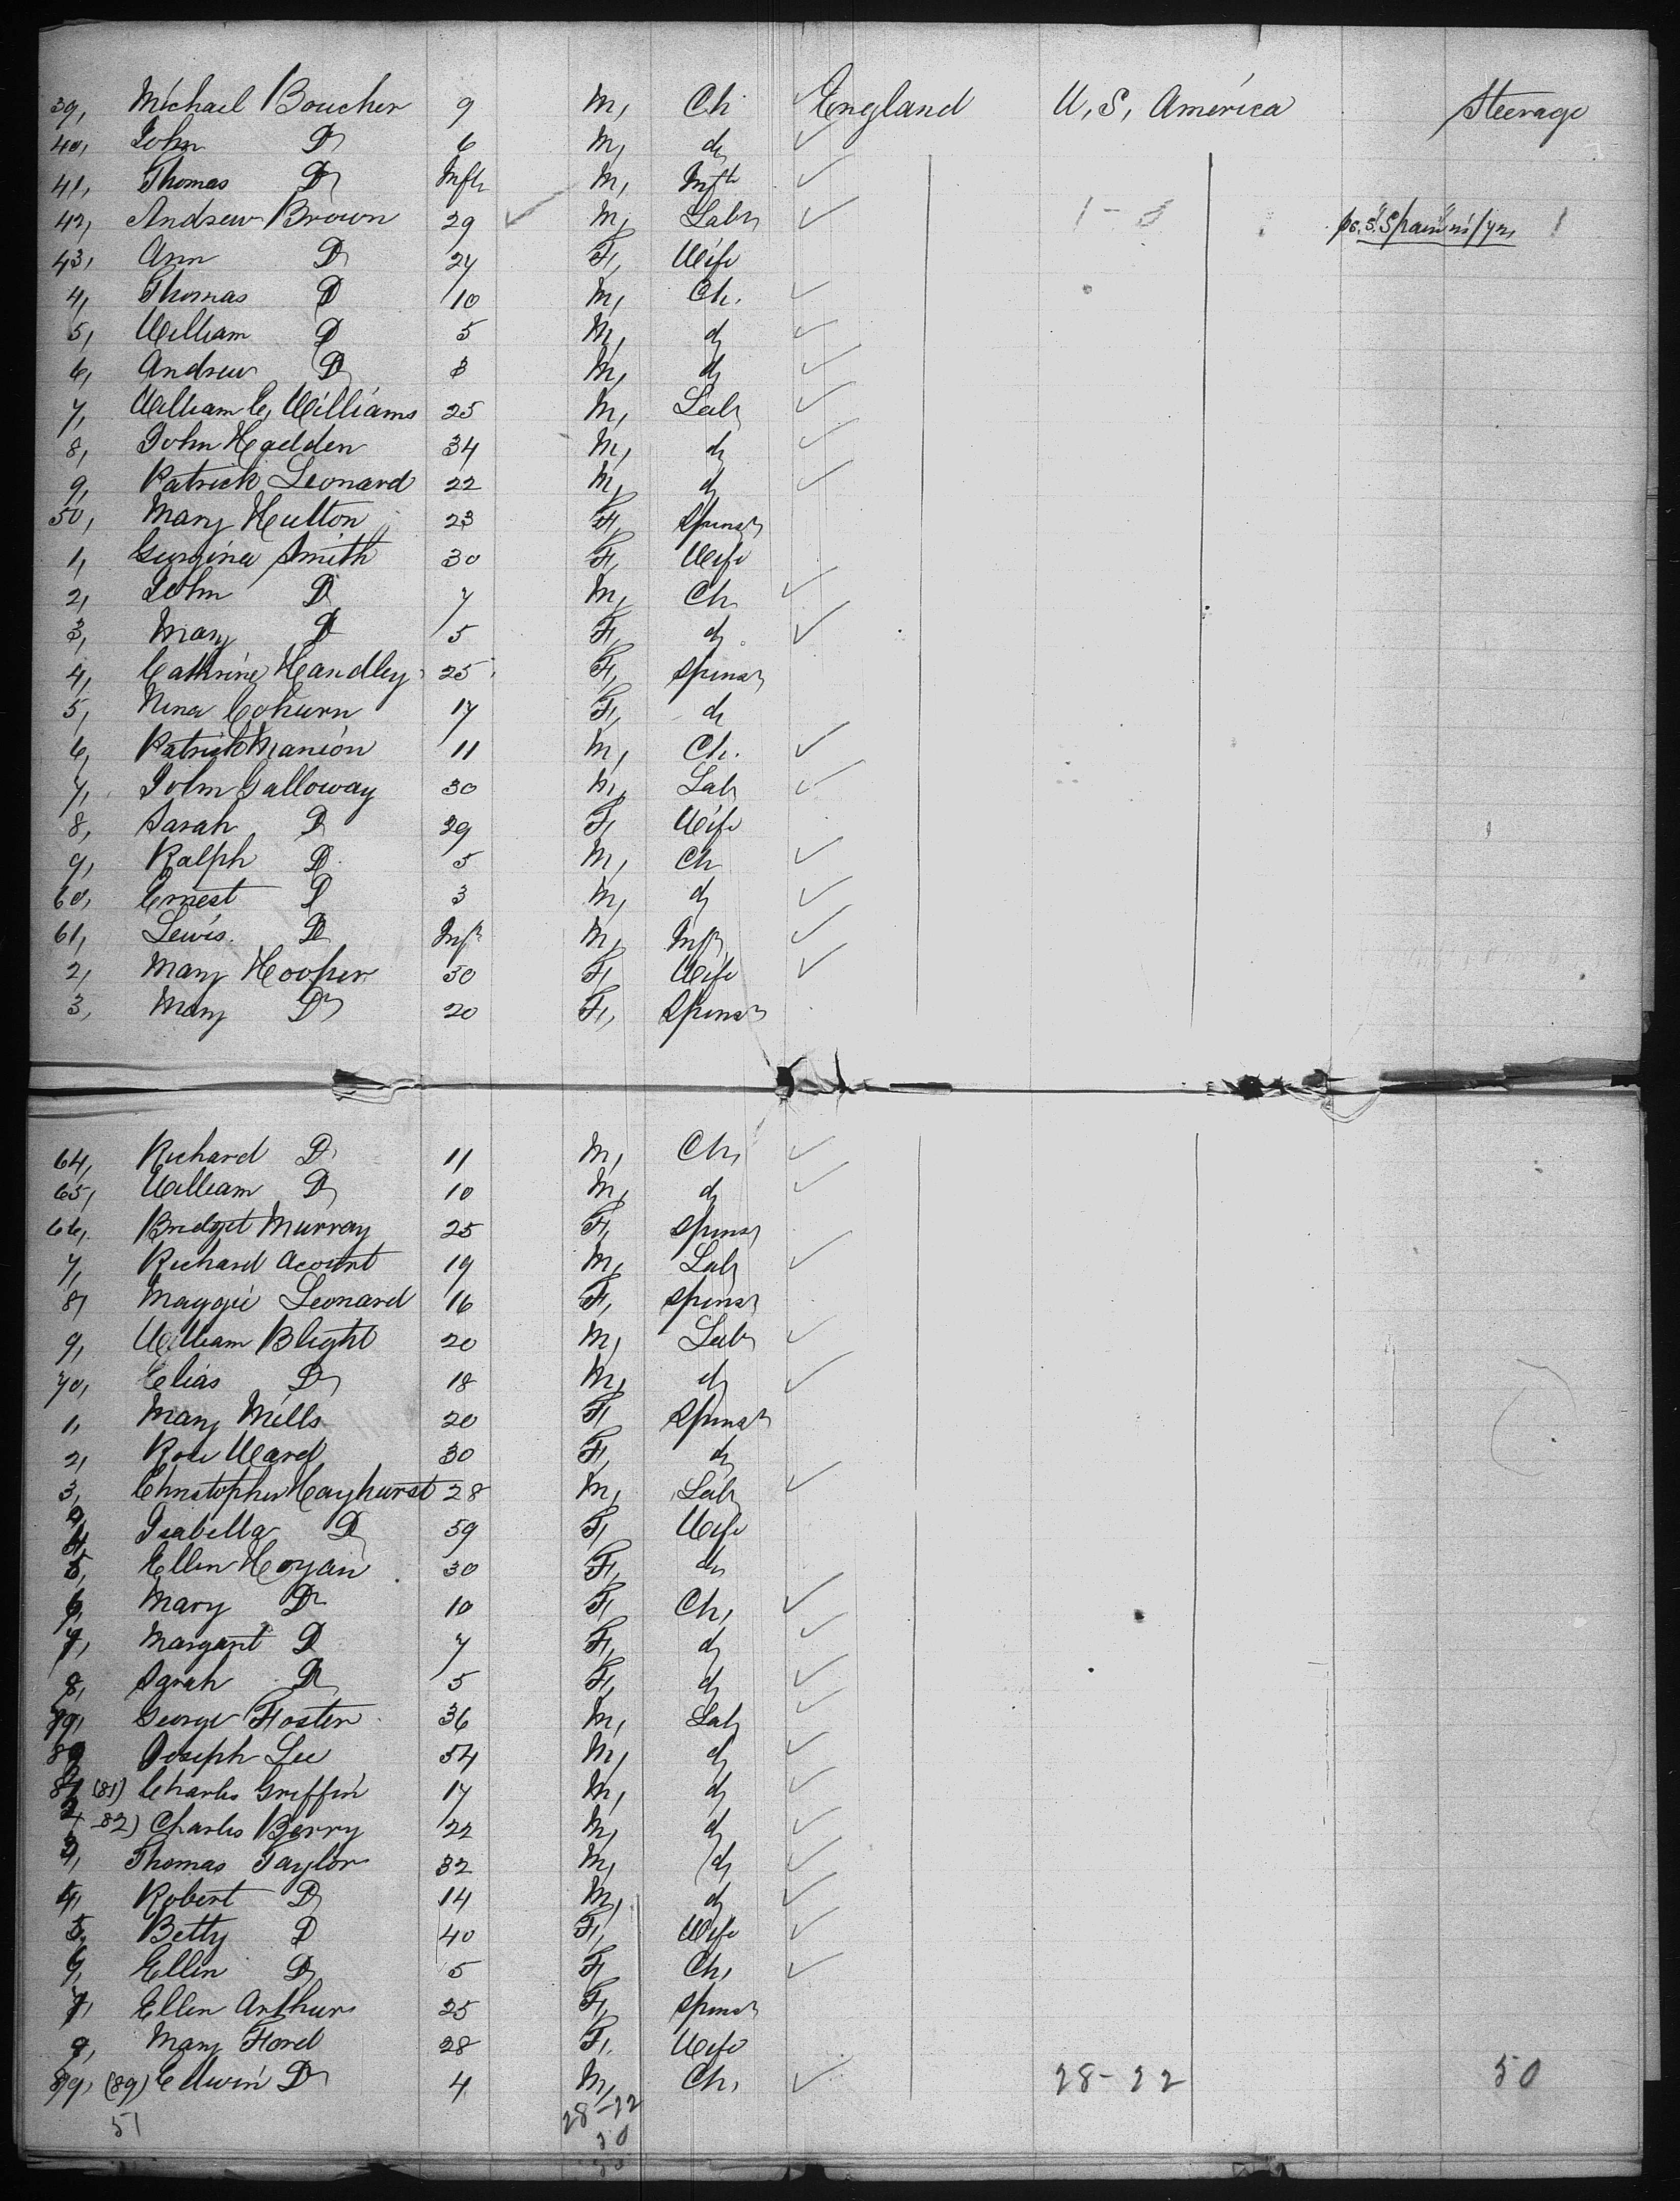 39, Michael Boucher 9 M, Ch England U. S. America Steerage
40, John Do 6 M, do
41, Thomas Do Inft M, Inft
42, Andrew Brown 29 M, Labr 1 - 1
43, Ann Do 27 F, Wife
4, Thomas Do 10 M, Ch.
5, William Do 5 M, do
6, Andrew Do 3 M, do
7, William C, Williams 25 M, Labr
8, John Hadden 34 M, do
9, Patrick Leonard 22 M, do
50, Mary Hutton 23 F, Spinsr
1, Gurgina Smith 30 F, Wife
2, John Do 7 M, Ch
3, Mary Do 5 F, do
4, Cathrine Handley 25 F, Spinsr
5, Nina Cohurn 17 F, do
6, Patrick Manion 11 M, Ch.
7, John Galloway 30 M, Labr
8, Sarah Do 29 F, Wife
9, Ralph Do 5 M, Ch
60, Ernest Do 3 M, do
61, Lewis Do Inft M, Inft
2, Mary Hooper 30 F, Wife
3, Mary Do 20 F, Spinsr
64, Richard Do 11 M, Ch,
65, William Do 10 M, do
66, Bridget Murray 25 F, Spinsr
7, Richard Acourt 19 M, Labr
8, Maggie Leonard 16 F, Spinsr
9, William Blight 20 M, Labr
70, Elias Do 18 M, do
1, Mary Mills 20 F, Spinsr
2, Rose Ward 30 F, do
3, Christopher Hayhurst 28 M, Labr
4, Isabella Do 59 F, Wife
5, Ellen 30 F, do
6, Mary Do 10 F, Ch,
7, Margaret Do 7 F, do
8, Sarah Do 5 F, do
79, George Foster 36 M, Labr
80 Joseph Lee 54 M, do
(81) Charles Griffin 17 M, do
82) Charles Berry 22 M, do
3, Thomas Taylor 32 M, do
4, Robert Do 14 M, do
5, Betty Do 40 F, Wife
6, Ellen Do 5 F, Ch,
7, Ellen Arthurs 25 F, Spinsr
Mary Ford 28 F, Wife
89, (89) Edwin Do 4 M, Ch, 28-22 50
51 28-22
50